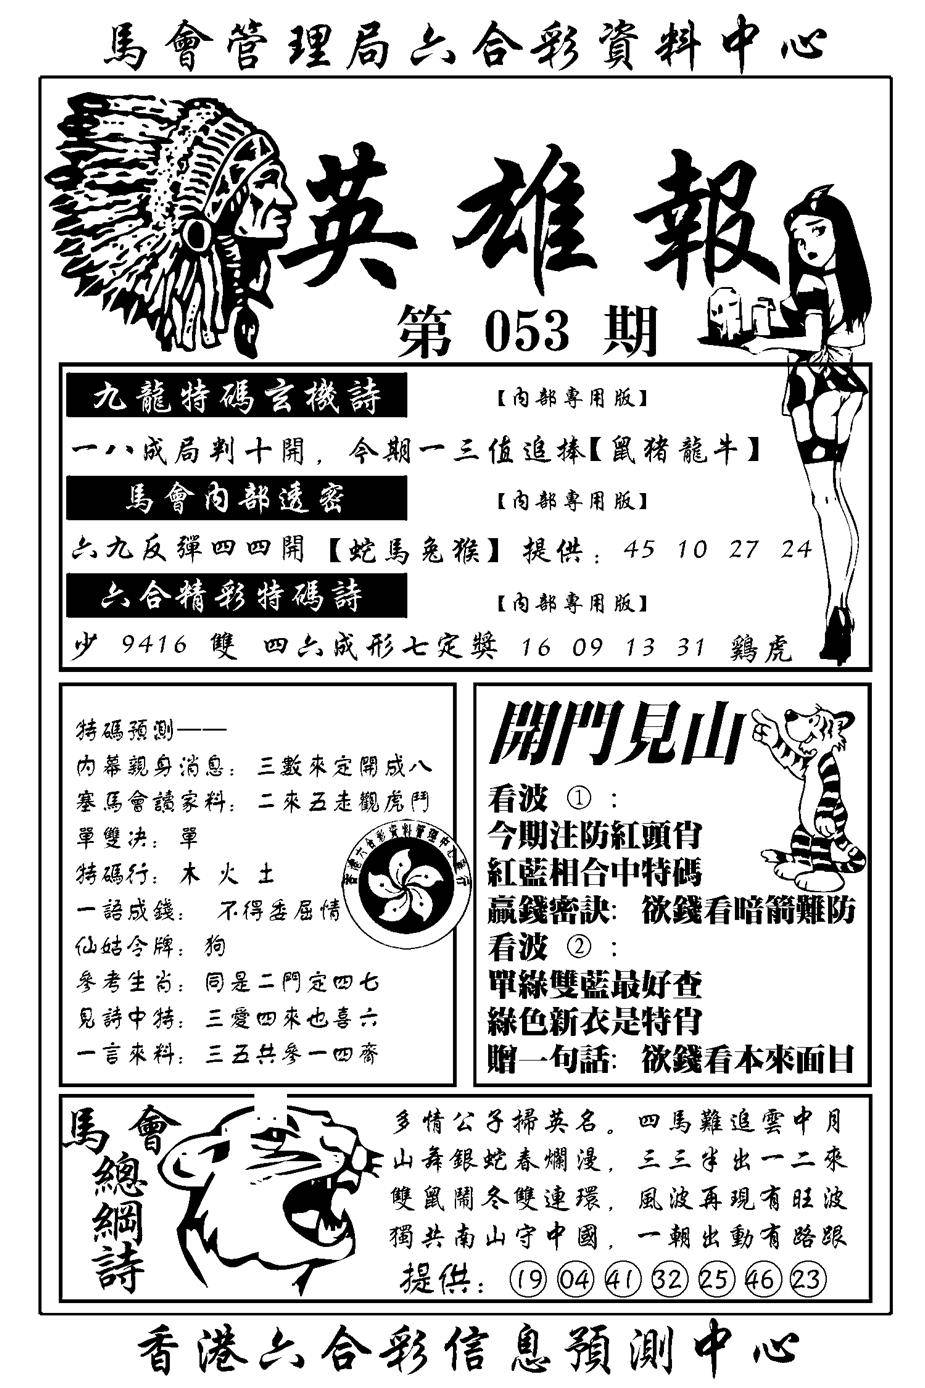 馬會管理局六合彩資料中心
英雄報
第 053 期
九龍特碼玄機詩 【內部專用版】
一八成局判十開，今期一三值追捧【鼠猪龍牛】
馬會內部透密 【內部專用版】
六九反彈四四開【蛇馬兔猴】提供：45 10 27 24
六合精彩特碼詩 【內部專用版】
少 9416 雙 四六成形七定獎 16 09 13 31 鷄虎
特碼預測——
內幕親身消息：三數來定開成八
塞馬會讀家料：二來五走觀虎鬥
單雙决：單
特碼行：木 火 土
一語成錢： 不得委屈情
仙姑令牌：狗
參考生肖：同是二門定四七
見詩中特：三愛四來也喜六
一言來料：三五共參一四齊
香港六合彩資料管理中心發行
開門見山
看波 ①：
今期注防紅頭肖
紅藍相合中特碼
贏錢密訣：欲錢看暗箭難防
看波 ②：
單綠雙藍最好查
綠色新衣是特肖
贈一句話：欲錢看本來面目
馬會
總綱詩
多情公子掃英名。四馬難追雲中月
山舞銀蛇春爛漫，三三半出一二來
雙鼠鬧冬雙連環，風波再現有旺波
獨共南山守中國，一朝出動有路跟
提供：⑲ 04 ㊶ ㉜ ㉕ ㊻ ㉓
香港六合彩信息預測中心